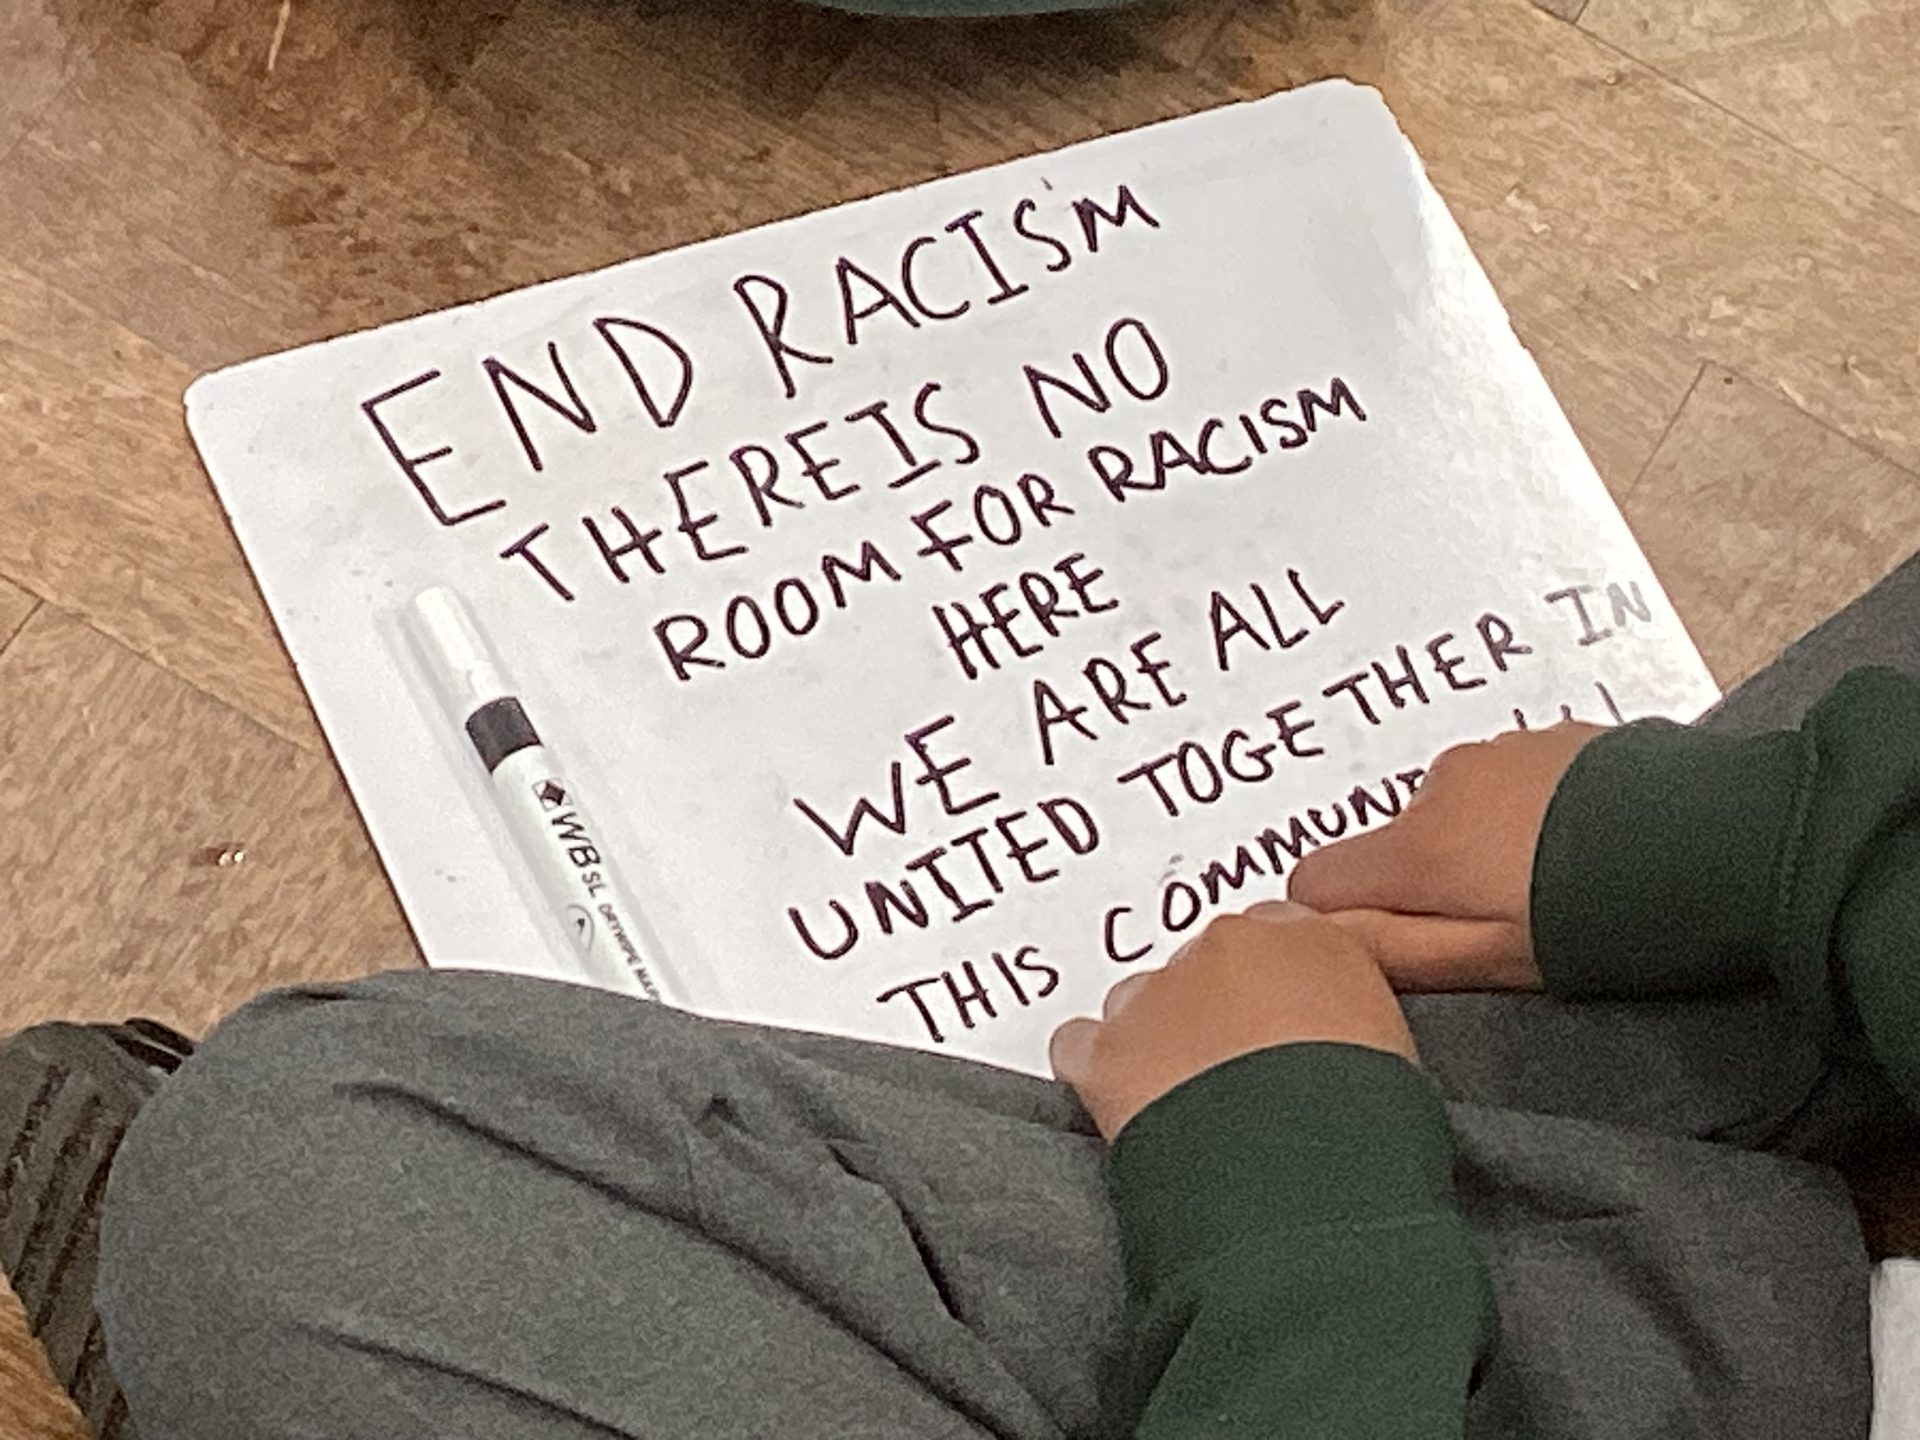 END RACISM
THERE IS NO
ROOM FOR RACISM
HERE
WE ARE ALL
UNITED TOGETHER IN
THIS
WBSL DRYWIPE